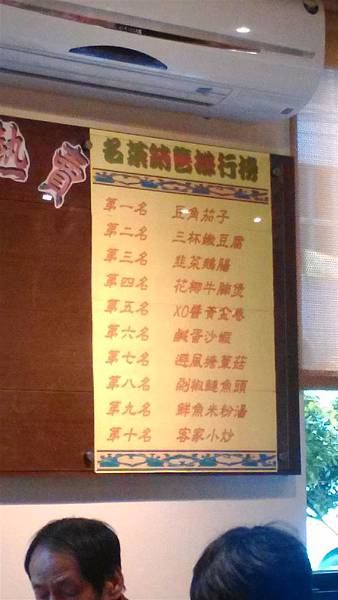 熱賣
名菜銷售排行榜
第一名 豆角茄子
第二名 三杯嫩豆腐
第三名 韭菜鵝腸
第四名 花椰牛腩煲
第五名 XO醬黃金卷
第六名 鹹蛋沙蝦
第七名 避風塘蕈菇
第八名 剁椒鰱魚頭
第九名 鮮魚米粉湯
第十名 客家小炒